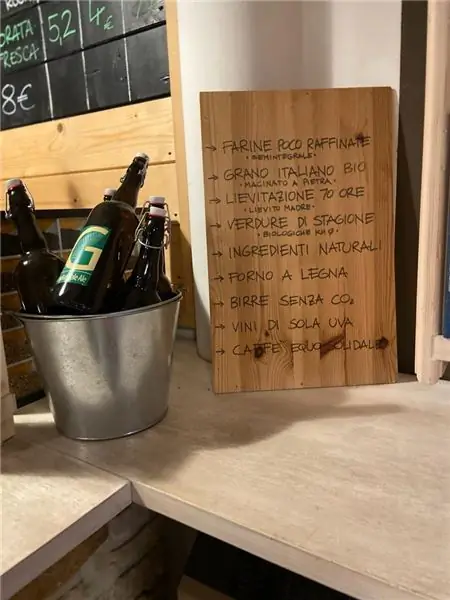 ORATA
FRESCA
5,2
4€
8€
G
→ FARINE POCO RAFFINATE
• SEMINTEGRALE •
→ GRANO ITALIANO BIO
• MACINATO A PIETRA •
→ LIEVITAZIONE 70 ORE
• LIEVITO MADRE •
→ VERDURE DI STAGIONE
• BIOLOGICHE KM Ø •
→ INGREDIENTI NATURALI
→ FORNO A LEGNA
→ BIRRE SENZA CO₂
→ VINI DI SOLA UVA
→ CAFFE' EQUO SOLIDALE